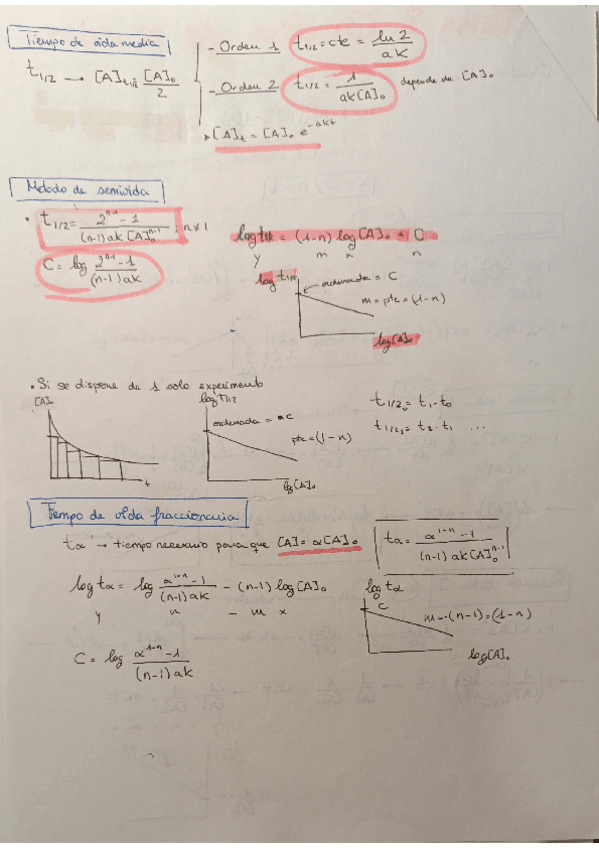 Tiempo de vida media
t1/2 → [A]t1/2 [A]₀/2
- Orden 1 t1/2 = cte = ln 2 / ak
- Orden 2 t1/2 = 1 / ak[A]₀ depende de [A]₀
[A]t = [A]₀ e^-akt
Método de semivida
• t1/2 = 2^(n-1) - 1 / (n-1) ak [A]₀^(n-1) ; n ≠ 1
C = log 2^(n-1) - 1 / (n-1) ak
log t1/2 = (1-n) log [A]₀ + C
y m x n
log t1/2
ordenada = C
m = pte = (1-n)
log [A]₀
• Si se dispone de 1 solo experimento
[A]
t
log t1/2
ordenada = C
pte = (1-n)
log [A]₀
t1/2₁ = t₁ - t₀
t1/2₂ = t₂ - t₁ ...
Tiempo de vida fraccionaria
tα → tiempo necesario para que [A] = α[A]₀
tα = α^(1-n) - 1 / (n-1) ak [A]₀^(n-1)
log tα = log α^(1-n) - 1 / (n-1) ak - (n-1) log [A]₀
y n - m x
C = log α^(1-n) - 1 / (n-1) ak
log tα
C
m = -(n-1) = (1-n)
log [A]₀